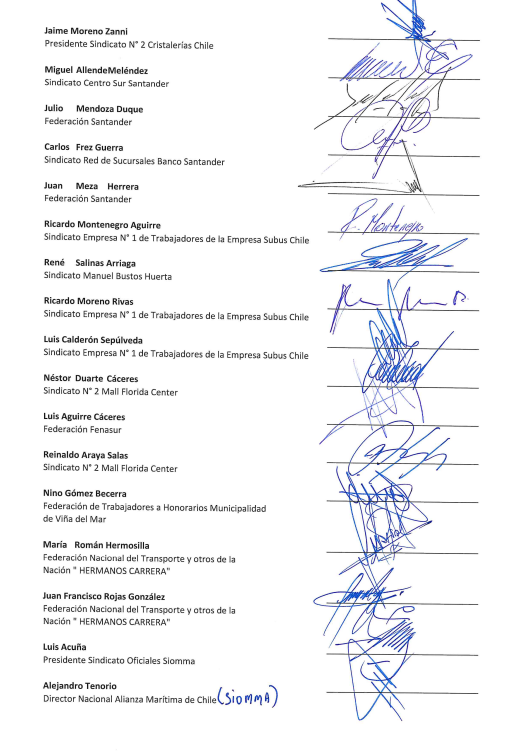 Jaime Moreno Zanni
Presidente Sindicato N° 2 Cristalerías Chile
Miguel AllendeMeléndez
Sindicato Centro Sur Santander
Julio Mendoza Duque
Federación Santander
Carlos Frez Guerra
Sindicato Red de Sucursales Banco Santander
Juan Meza Herrera
Federación Santander
Ricardo Montenegro Aguirre
Sindicato Empresa N° 1 de Trabajadores de la Empresa Subus Chile
R. Montenegro
René Salinas Arriaga
Sindicato Manuel Bustos Huerta
Ricardo Moreno Rivas
Sindicato Empresa N° 1 de Trabajadores de la Empresa Subus Chile
Luis Calderón Sepúlveda
Sindicato Empresa N° 1 de Trabajadores de la Empresa Subus Chile
Néstor Duarte Cáceres
Sindicato N° 2 Mall Florida Center
Luis Aguirre Cáceres
Federación Fenasur
Reinaldo Araya Salas
Sindicato N° 2 Mall Florida Center
Nino Gómez Becerra
Federación de Trabajadores a Honorarios Municipalidad
de Viña del Mar
María Román Hermosilla
Federación Nacional del Transporte y otros de la
Nación " HERMANOS CARRERA"
Juan Francisco Rojas González
Federación Nacional del Transporte y otros de la
Nación " HERMANOS CARRERA"
Luis Acuña
Presidente Sindicato Oficiales Siomma
Alejandro Tenorio
Director Nacional Alianza Marítima de Chile (SIOMMA)